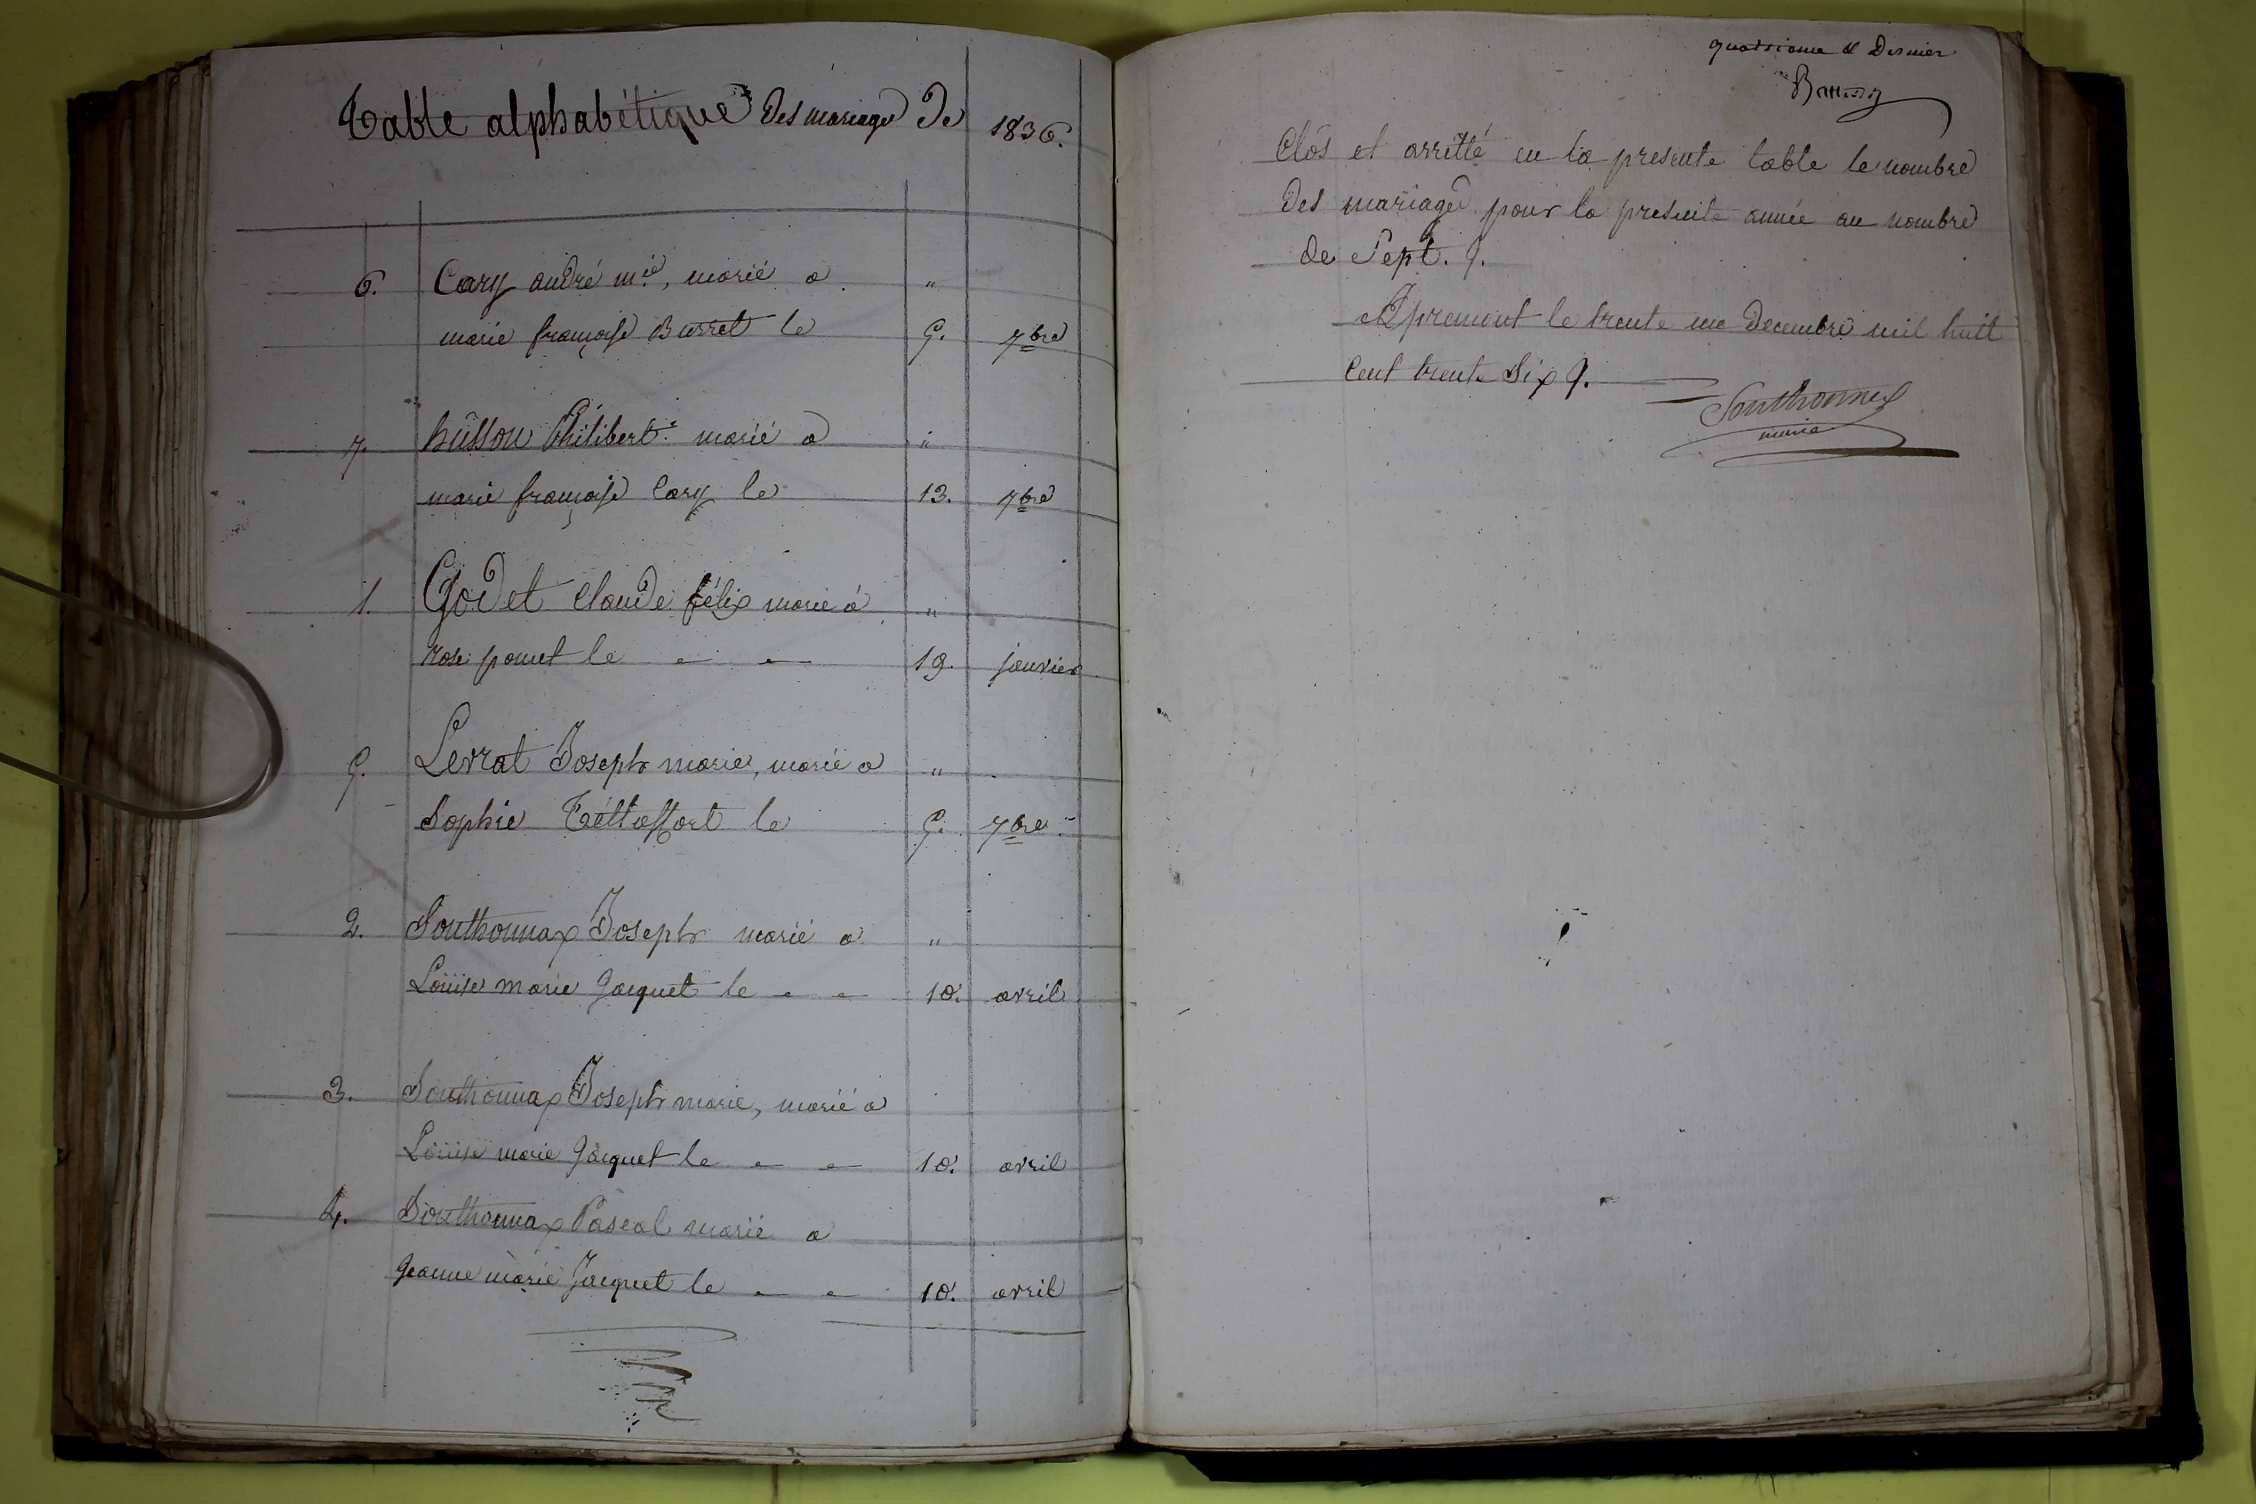 Table alphabétique des mariages de 1836.
6. Cary andré m.ie, marié a "
marie françoise Burret le 9. 7bre
7. husson Philibert. marié a "
marie françoise Cary le 13. 7bre
1. Godet Claude félix marié á "
rose ponet le - - 19. janvier
5. Levrat Joseph marie, marié a "
Sophie le 5. 7bre
2. Southonnax Joseph marié a "
Louise marie Jacquet le - - 10. avril
3. Southonnax Joseph marie, marié a
Louise marie Jacquet le - - 10. avril
4. Southonnax Pascal marié a
Jeanne marie Jacquet le - - 10. avril
quatrieme et Dernier
Clôs et arrêtté en la presente table le nombre
des mariages pour la presente année au nombre
de Sept.
Apremont le trente un Decembre mil huit
cent trente Six
Southonnax
maire